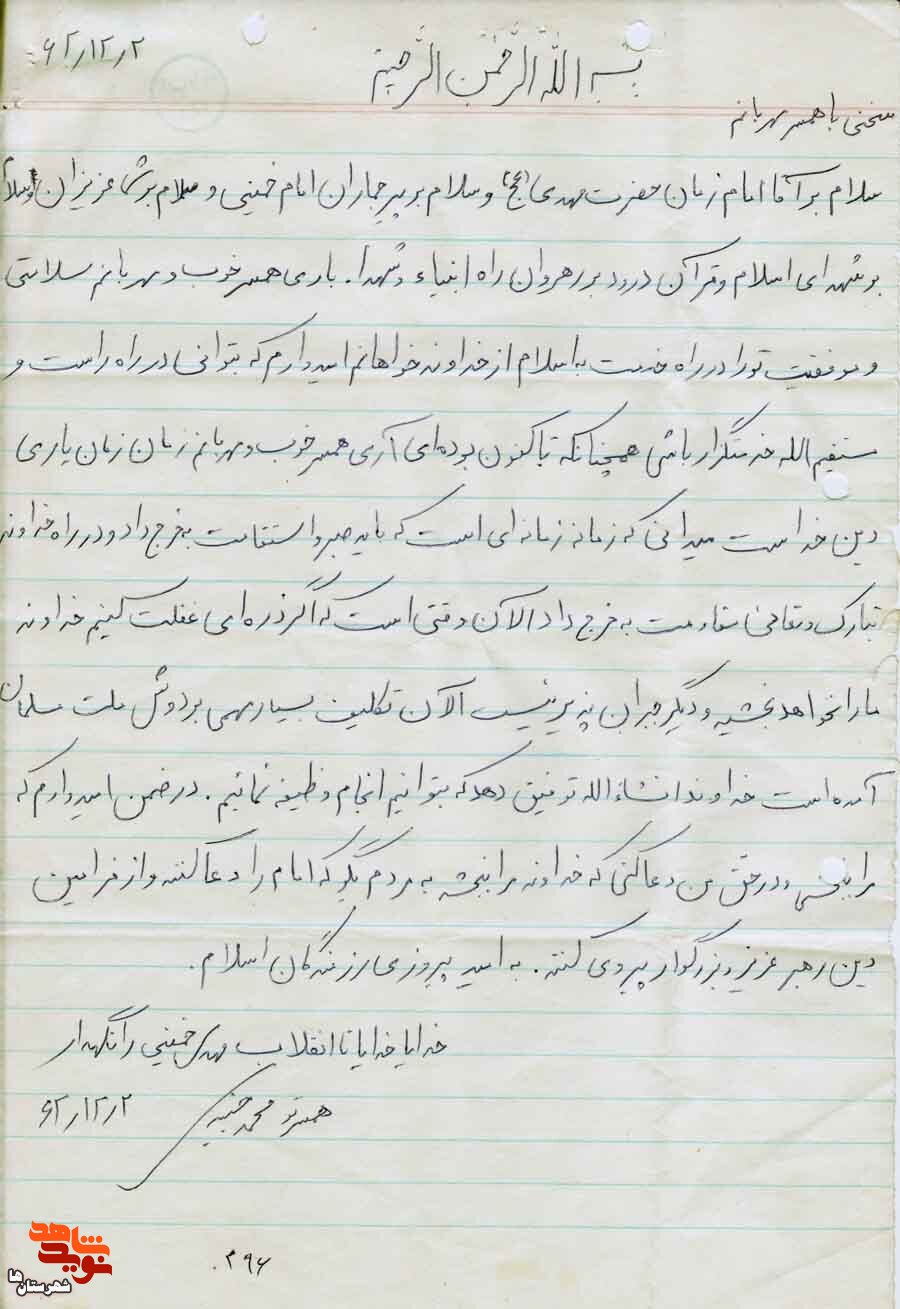 ۶۲٫۱۲٫۲
بسم الله الرحمن الرحیم
سخنی با همسر مهربانم
سلام بر آقا امام زمان حضرت مهدی (عج) و سلام بر پیر جماران امام خمینی و سلام بر شما عزیزان و سلام
بر شهدای اسلام و قرآن درود بر رهروان راه انبیاء و شهدا. باری همسر خوب و مهربانم سلامتی
و موفقیت تو را در راه خدمت به اسلام از خداوند خواهانم امیدوارم که بتوانی در راه راست و
مستقیم الله خدمتگزار باشی همچنانکه تاکنون بوده‌ای آری همسر خوب و مهربانم زمان زمان یاری
دین خداست میدانی که زمانه زمانه‌ای است که باید صبر و استقامت به خرج داد و در راه خداوند
تبارک و تعالی مقاومت به خرج داد الآن وقتی است که اگر ذره‌ای غفلت کنیم خداوند
ما را نخواهد بخشید و دیگر جبران پذیر نیست الآن تکلیف بسیار مهمی بر دوش ملت مسلمان
آمده است خداوند انشاءالله توفیق دهد که بتوانیم انجام وظیفه نمائیم. در ضمن امیدوارم که
مرا ببخشی و در حق من دعا کنی که خداوند مرا ببخشد به مردم بگو که امام را دعا کنند و از فرامین
این رهبر عزیز و بزرگوار پیروی کنند. به امید پیروزی رزمندگان اسلام.
خدایا خدایا تا انقلاب مهدی خمینی را نگهدار
همسر تو محمد ۶۲٫۱۲٫۲
۲۹۶.
نوید شاهد
شهرستان‌ها